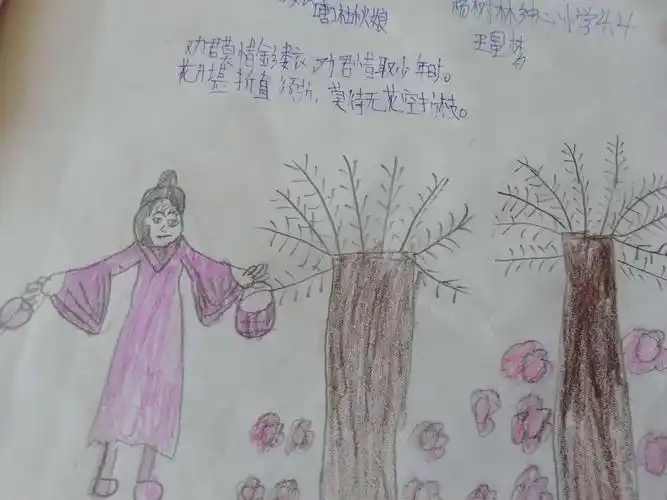 唐杜秋娘
杨树林中心小学4.4
王星梦
劝君莫惜金缕衣,劝君惜取少年时。
花开堪折直须折,莫待无花空折枝。